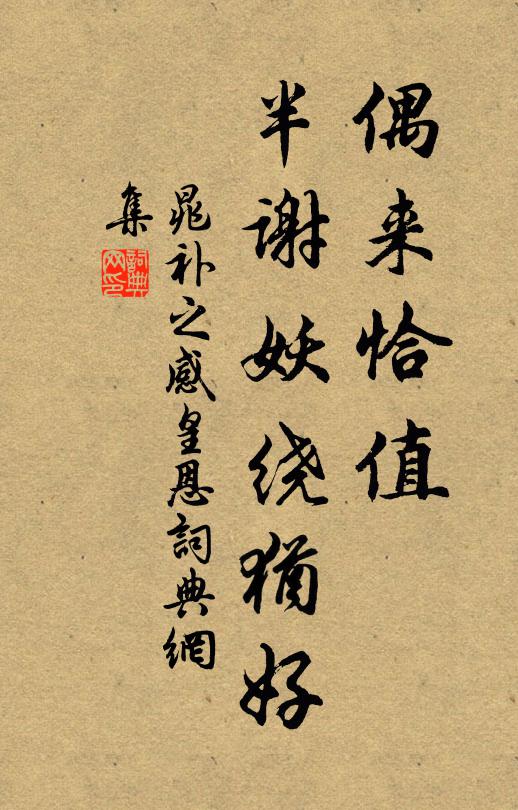 偶来恰值
半谢妖绕犹好
晁补之感皇恩詞典網
集
詞典网印